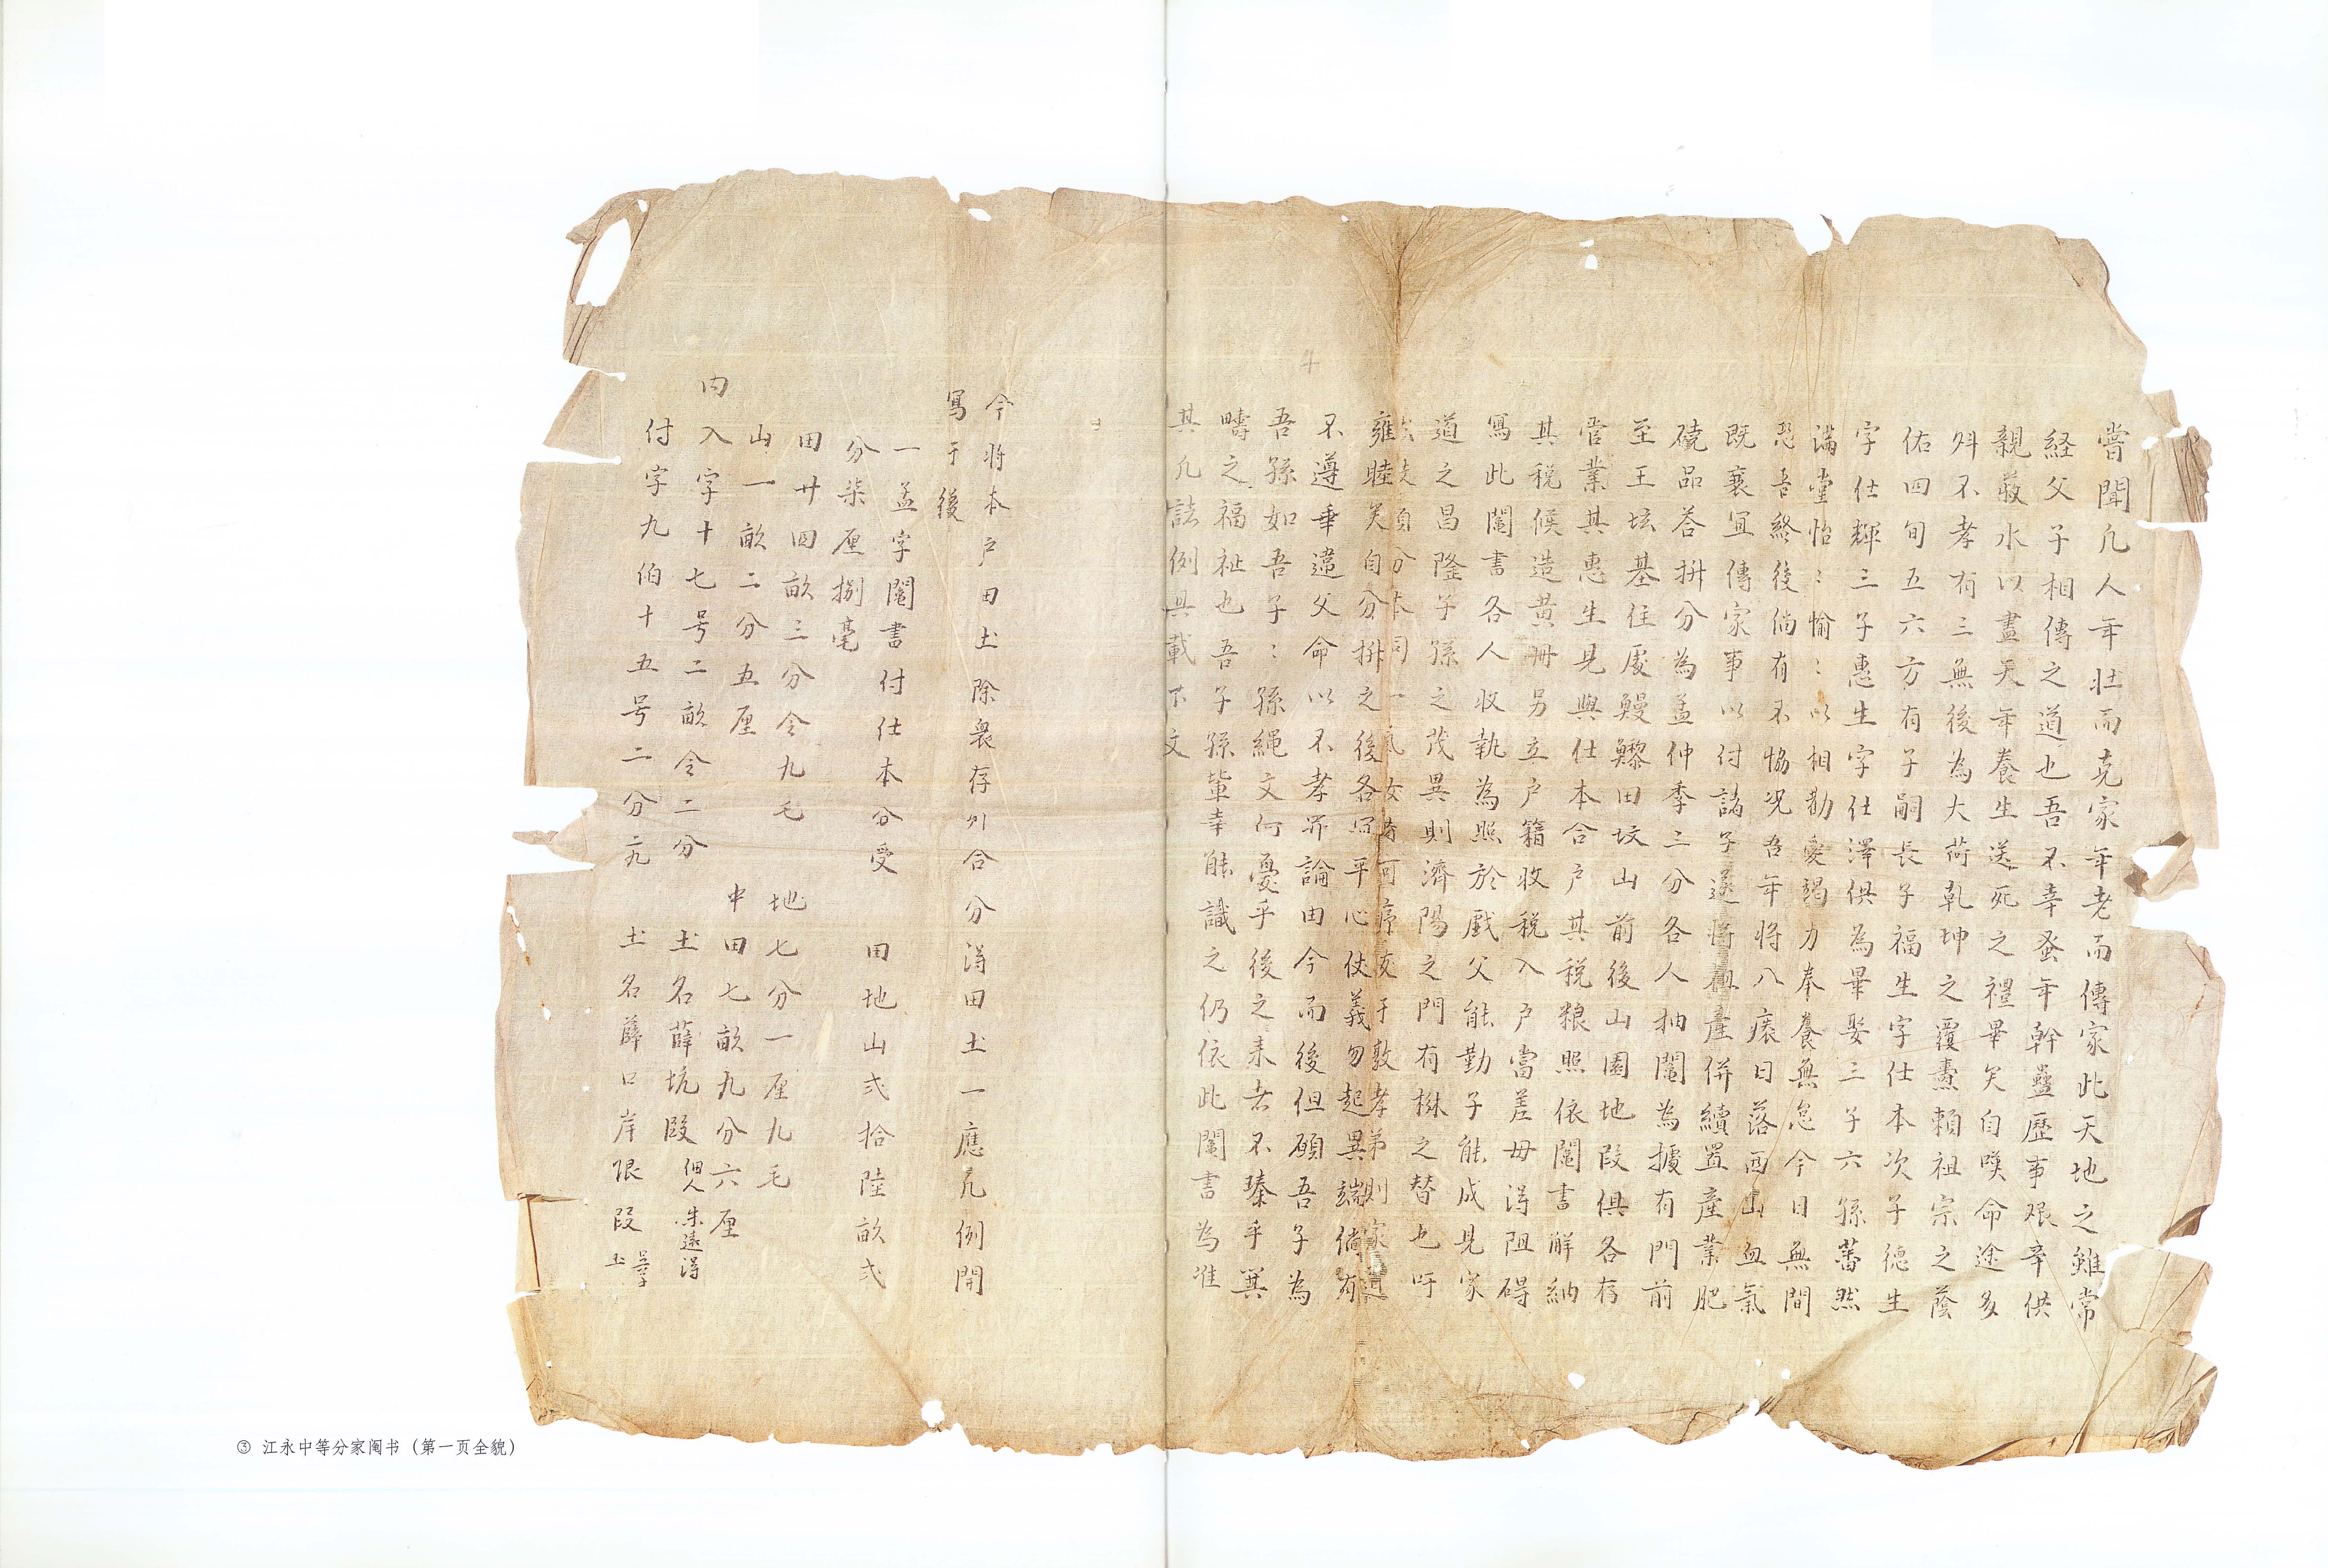 嘗聞凡人年壮而克家年老而傳家此天地之雖常
経父子相傳之道也吾不幸蚤年幹蠱歷事艰辛供
親菽水以盡天年養生送死之禮畢矣自嘆命途多
舛不孝有三無後為大荷乹坤之覆燾賴祖宗之蔭
佑四旬五六方有子嗣長子福生字仕本次子德生
字仕輝三子惠生字仕澤俱為畢娶三子六孫蕃然
滿堂怡〻愉〻以相勸愛竭力奉養無怠今日無間
恐吾終後倘有不恊况吾年将八𮖐日落西山血氣
既衰宜傳家事以付諸子遂將祖產併續置產業肥
磽品荅拚分為孟仲季三分各人抽鬮為據有門前
至王坛基住處鰻鱺田坟山前後山園地段俱各存
管業其惠生見與仕本合户其税粮照依鬮書解納
其税候造黄冊另立户籍收税入户當差毋得阻碍
寫此鬮書各人收執為照於戲父能勤子能成見家
道之昌隆子孫之茂異則濟陽之門有楙之替也吁
分本同一氣 孝弟則家道
雍睦矣自分拚之後各宜平心仗義勿起異端倘有
不遵垂違父命以不孝罪論由今而後但願吾子為
吾孫如吾子〻孫繩文何憂乎後之来者不臻乎箕
疇之福祉也吾子孫輩幸能識之仍依此鬮書為准
其凡誌例具載下文
今将本户田土除衆存外合分得田土一應凡例開
寫于後
一孟字鬮書付仕本分受 田地山弍拾陸畝弍
分柒厘捌毫
田廿四畝三分令九毛 地七分一厘九毛
山一畝二分五厘 中田七畝九分六厘
内
入字十七号二畝令二分 土名薛坑段 佃人朱遠得
付字九伯十五号二分九 土名薛口岸垠段
③ 江永中等分家阄书（第一页全貌）